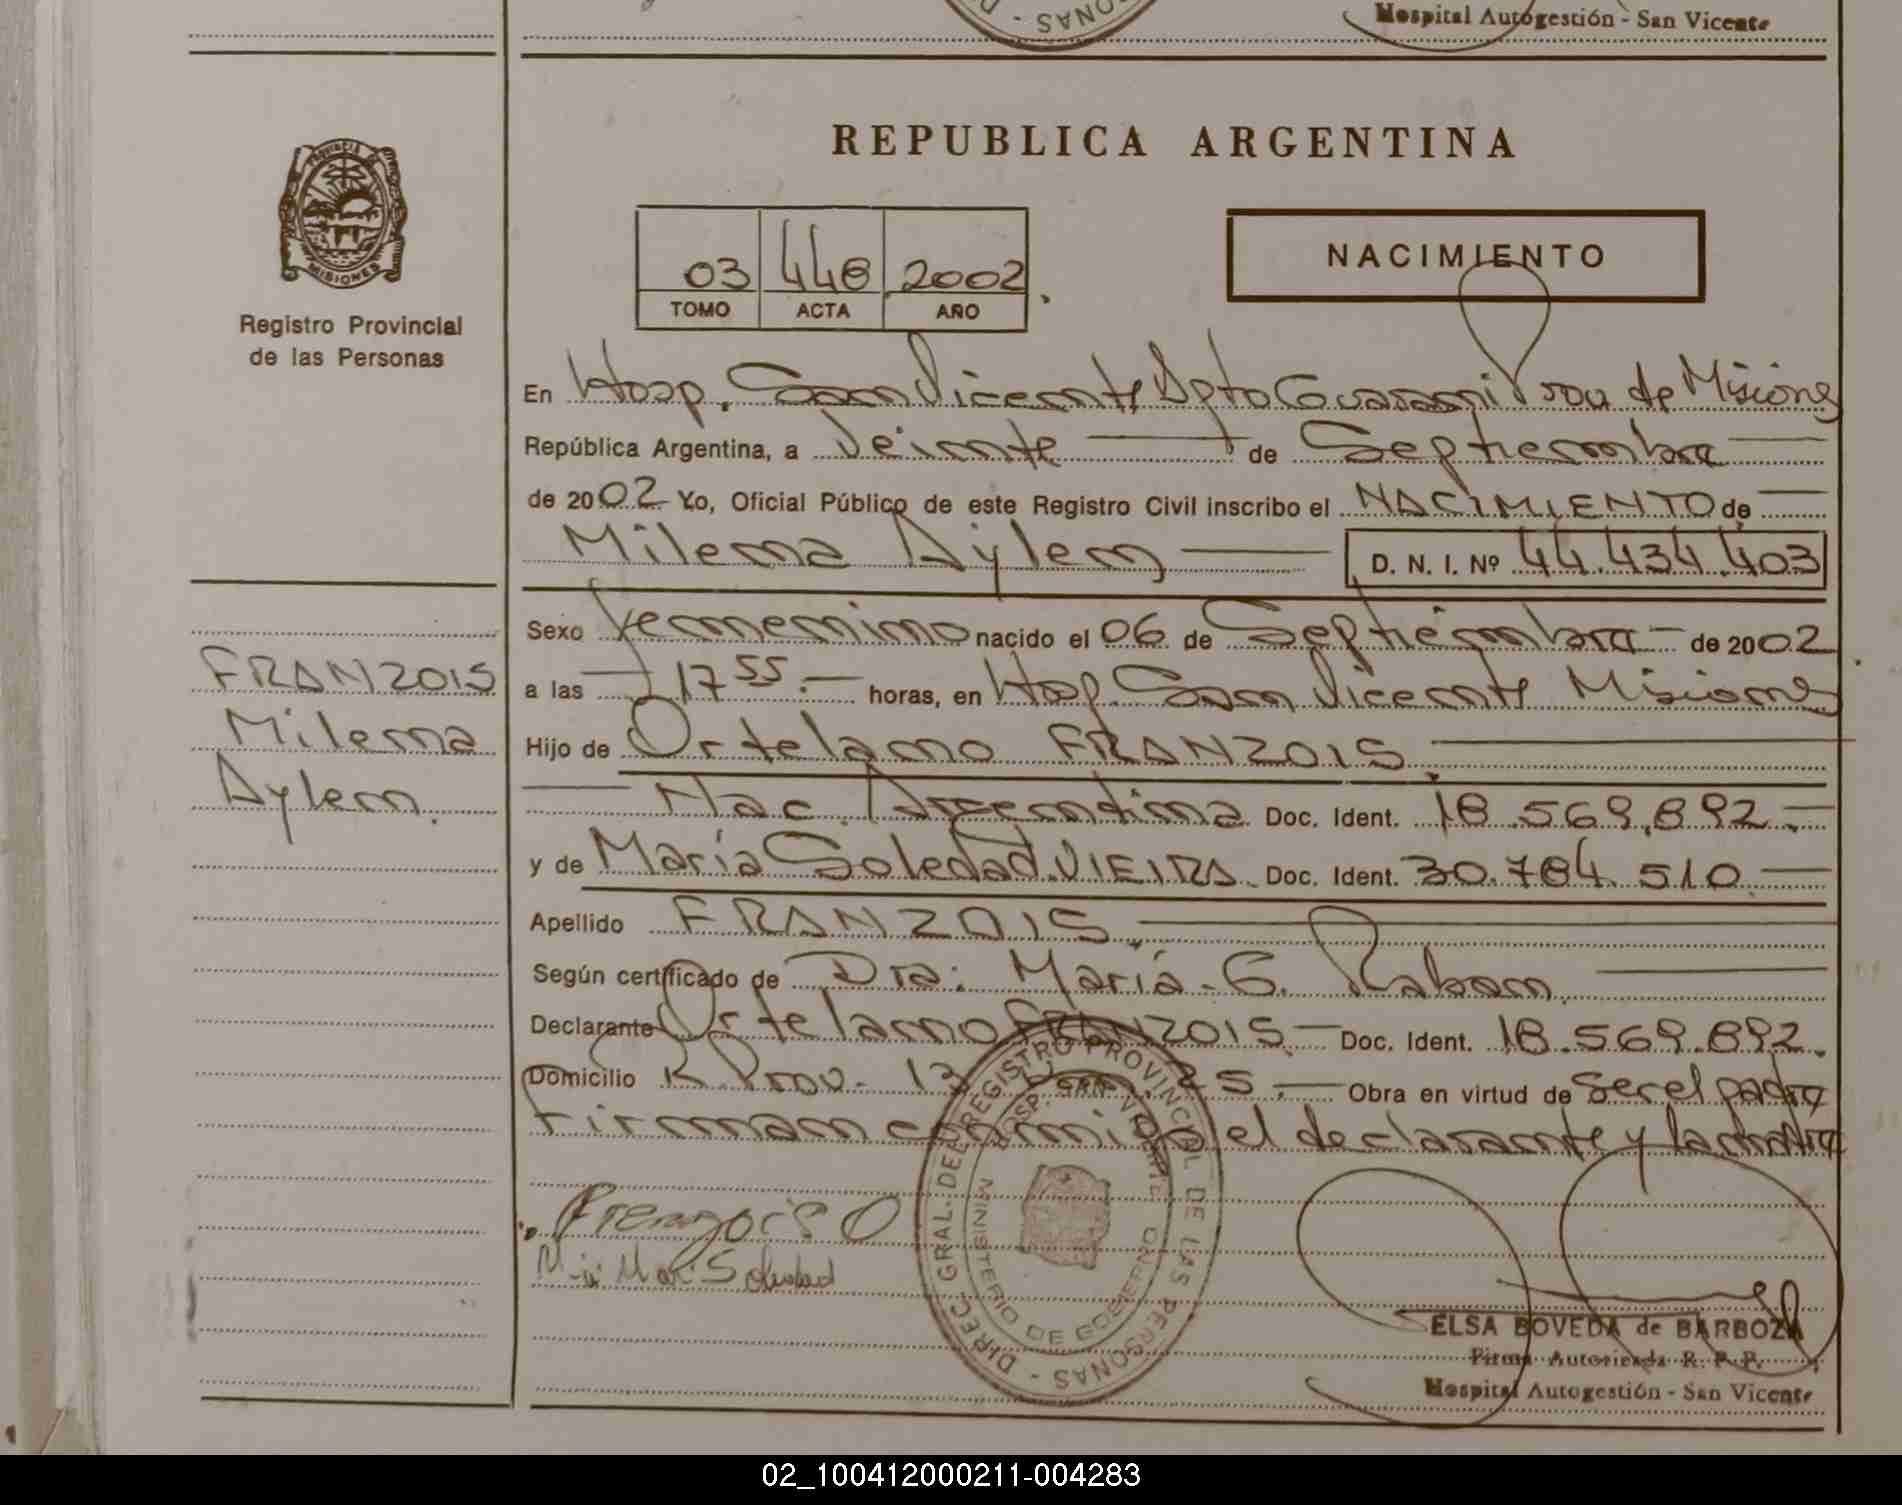 Hospital Autogestión - San Vicente
REPUBLICA ARGENTINA
PROVINCIA DE
MISIONES
Registro Provincial
de las Personas
03 448 2002
TOMO ACTA AÑO
NACIMIENTO
En Hosp. San Vicente Dpto Guarani Prov de Misiones
República Argentina, a Veinte de Septiembre
de 2002 Yo, Oficial Público de este Registro Civil inscribo el NACIMIENTO de
Milena Aylen D. N. I. Nº 44.434.403
Sexo femenino nacido el 06 de Septiembre de 2002
a las 17 55 horas, en Hosp. San Vicente Misiones
Hijo de Ortelano FRANZOIS.
Nac. Argentina Doc. Ident. 18.569.892.
y de María Soledad VIEIRA. Doc. Ident. 30.784.510.
Apellido FRANZOIS.
Según certificado de Dra: María G. Raban.
Declarante Ortelano FRANZOIS. Doc. Ident. 18.569.892.
Domicilio R. Prov. 13 25. Obra en virtud de Ser el padre
Firman conmigo el declarante y la madre
FRANZOIS
Milena
Aylen.
Franzois O
Soledad
DIREC. GRAL. DEL REGISTRO PROVINCIAL DE LAS PERSONAS
HOSP. SAN VICENTE
MINISTERIO DE GOBIERNO
ELSA BOVEDA de BARBOZA
Firma Autorizada R. P. P.
Hospital Autogestión - San Vicente
02_100412000211-004283